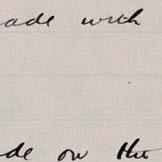 ade with
de on the